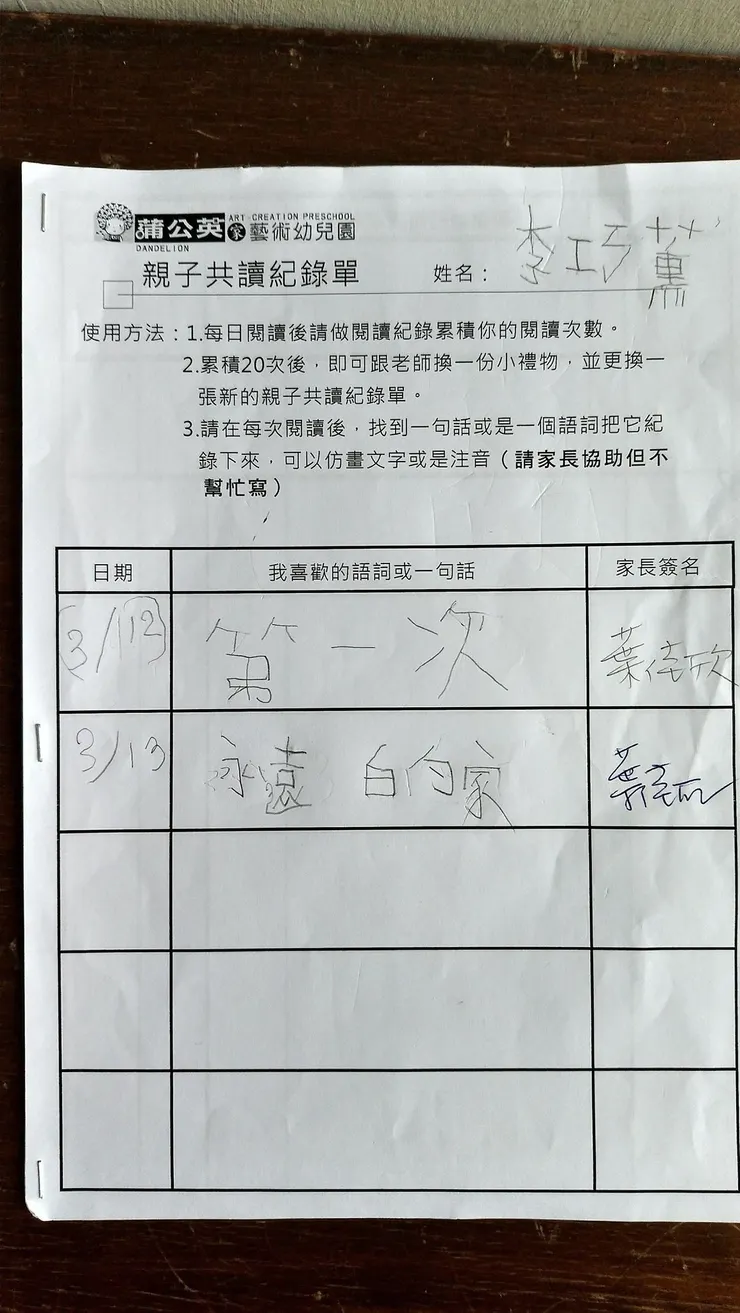 ART CREATION PRESCHOOL
蒲公英家藝術幼兒園
DANDELION
親子共讀紀錄單 姓名： 李巧薰
使用方法：1.每日閱讀後請做閱讀紀錄累積你的閱讀次數。
2.累積20次後，即可跟老師換一份小禮物，並更換一
張新的親子共讀紀錄單。
3.請在每次閱讀後，找到一句話或是一個語詞把它紀
錄下來，可以仿畫文字或是注音（請家長協助但不
幫忙寫）
日期 我喜歡的語詞或一句話 家長簽名
3/12 第一次 葉佳欣
3/13 永遠 白的家